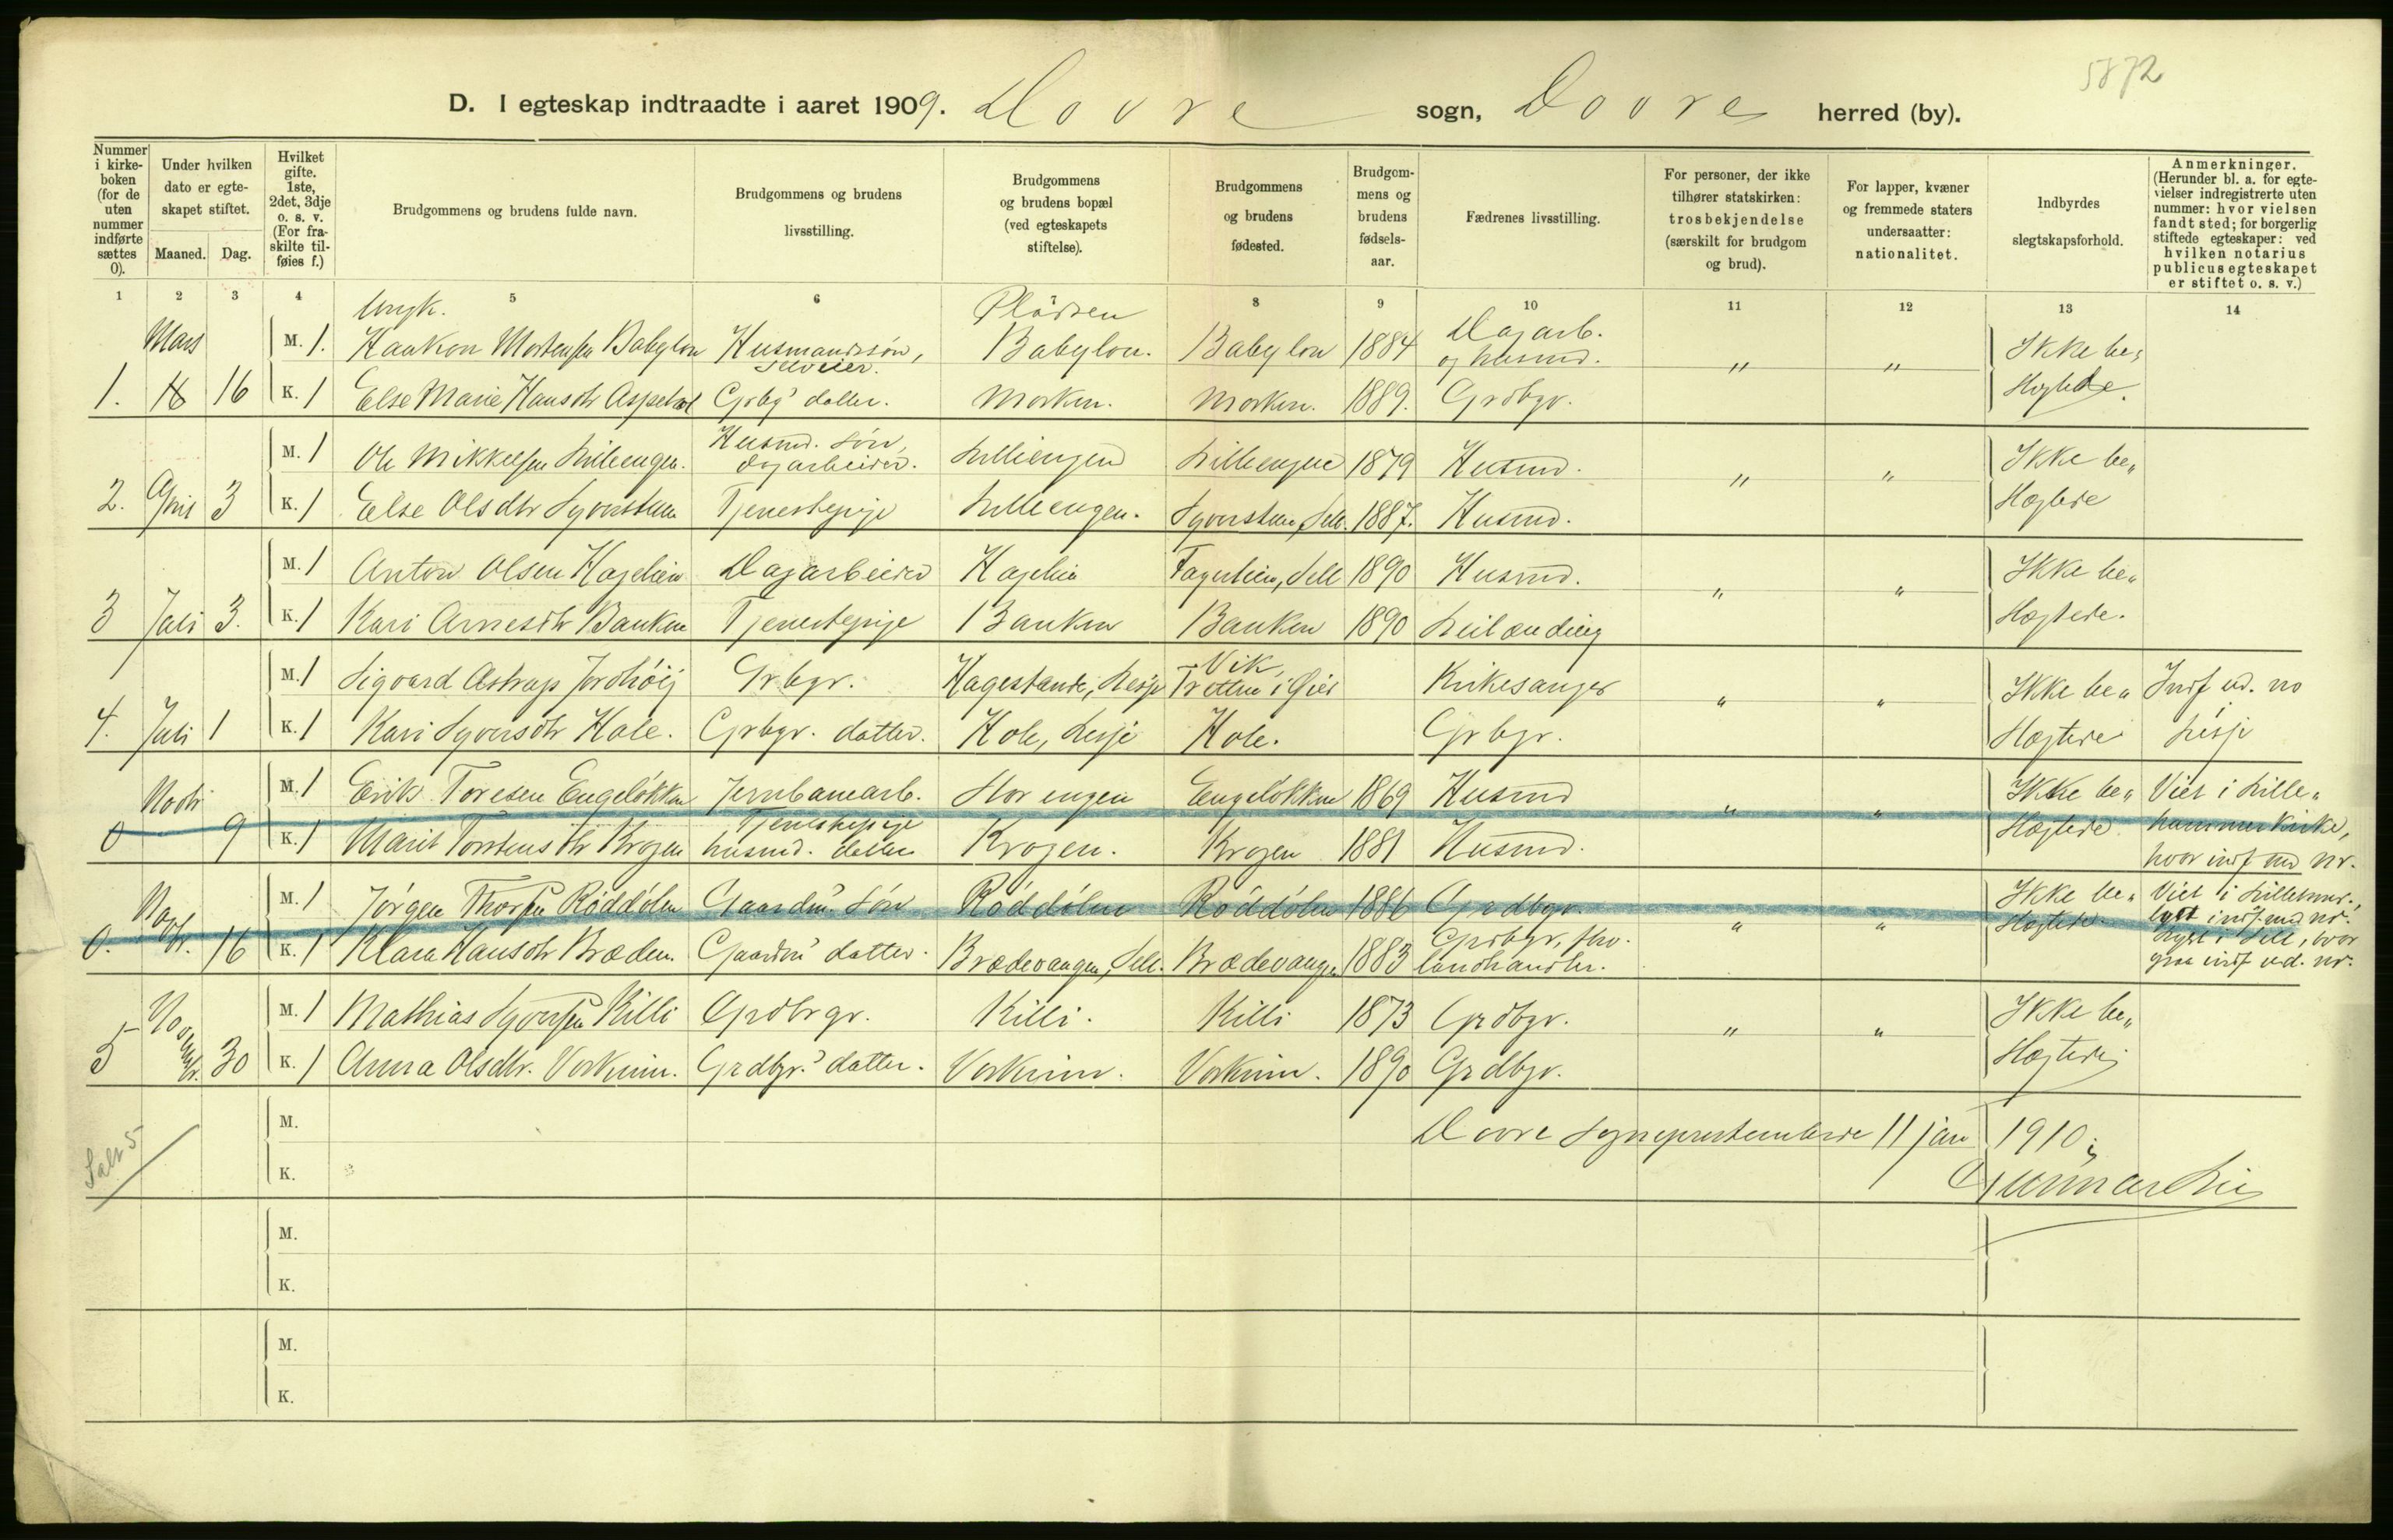 5872
D. I egteskap indtraadte i aaret 1909. Dovre sogn, Dovre herred (by).
Nummer i kirke- boken (for de uten nummer indførte sættes 0).
Under hvilken dato er egte- skapet stiftet.
Maaned. Dag.
Hvilket gifte. 1ste, 2det, 3dje o. s. v. (For fra- skilte til- føies f.)
Brudgommens og brudens fulde navn.
Brudgommens og brudens livsstilling.
Brudgommens og brudens bopæl (ved egteskapets stiftelse).
Brudgommens og brudens fødested.
Brudgom- mens og brudens fødsels- aar.
Fædrenes livsstilling.
For personer, der ikke tilhører statskirken: trosbekjendelse (særskilt for brudgom og brud).
For lapper, kvæner og fremmede staters undersaatter: nationalitet.
Indbyrdes slegtskapsforhold.
Anmerkninger. (Herunder bl. a. for egte- vielser indregistrerte uten nummer: hvor vielsen fandt sted; for borgerlig stiftede egteskaper: ved hvilken notarius publicus egteskapet er stiftet o. s. v.)
1 2 3 4 5 6 7 8 9 10 11 12 13 14
Ungk. Plassen
Mars M. 1. Haakon Mortensen Babylon Husmandssøn, selveier. Babylon. Babylon 1884 Dagarb. og husmd. " " Ikke be-
1. 16 K. 1 Else Marie Hansdtr Aspehol Grbg' datter. Morken. Morken. 1889. Grdbgr. slegtede.
M. 1 Ole Mikkelsen Lilleengen. Husmd. søn, dagarbeider. Lilleengen Lilleengen 1879 Husmd. " " Ikke be„
2. April 3 K. 1 Else Olsdtr Syverstuen Tjenestepige Lilleengen. Syverstuen, Sell. 1887. Husmd. slegtede
M. 1 Anton Olsen Hagelien Dagarbeider Hagelien Fagerlien, Sell 1890 Husmd. " " Ikke be„
3 Juli 3. K. 1 Kari Arnesdtr Banken Tjenestepige Banken Banken 1890 Leilænding slegtede.
M. 1 Sigvard Astrup Jordhøij Grbgr. Hagestande, Lesje Vik, Tretten i Øier Kirkesanger " " Ikke be„ Indf ud. no
4. Juli 1 K. 1 Kari Syversdtr Hole. Grbgr. datter. Hole, Lesje Hole. Grbgr. slegtede Lesje
Novbr M. 1 Erik Toresen Engeløkken Jernbanearb. Storengen Engeløkken 1869 Husmd " " Ikke be„ Viet i Lille„
0 9 K. 1 Marit Torstensdtr Krogen Tjenestepige husmd. datter Krogen. Krogen 1881 Husmd. slegtede hammer kirke,
hvor indf med nr.
Novbr. M. 1 Jørgen Thorsen Røddølen Gaardm. søn Røddølen Røddølen 1886 Grdbgr. " " Ikke be„ Viet i Lillehmr.,
0. 16 K. 1 Klara Hansdtr Bræden. Gaardm' datter. Brædevangen, Sell. Brædevangen 1883 Grdbgr, landhandler. slegtede. lyst i Sell, hvor
ud. nr.
M. 1 Mathias Syversen Killi Grdbrgr. Killi. Killi 1873 Grdbgr. " " Ikke be„
5 Novembr. 30 K. 1 Anna Olsdtr. Vorkinn. Grdbgr.' datter. Vorkinn. Vorkinn. 1890 Grdbgr. slegtede
M. Dovre Sogneprestembede 11 jan 1910
Talt 5
K. Gunnar Lie
M.
K.
M.
K.